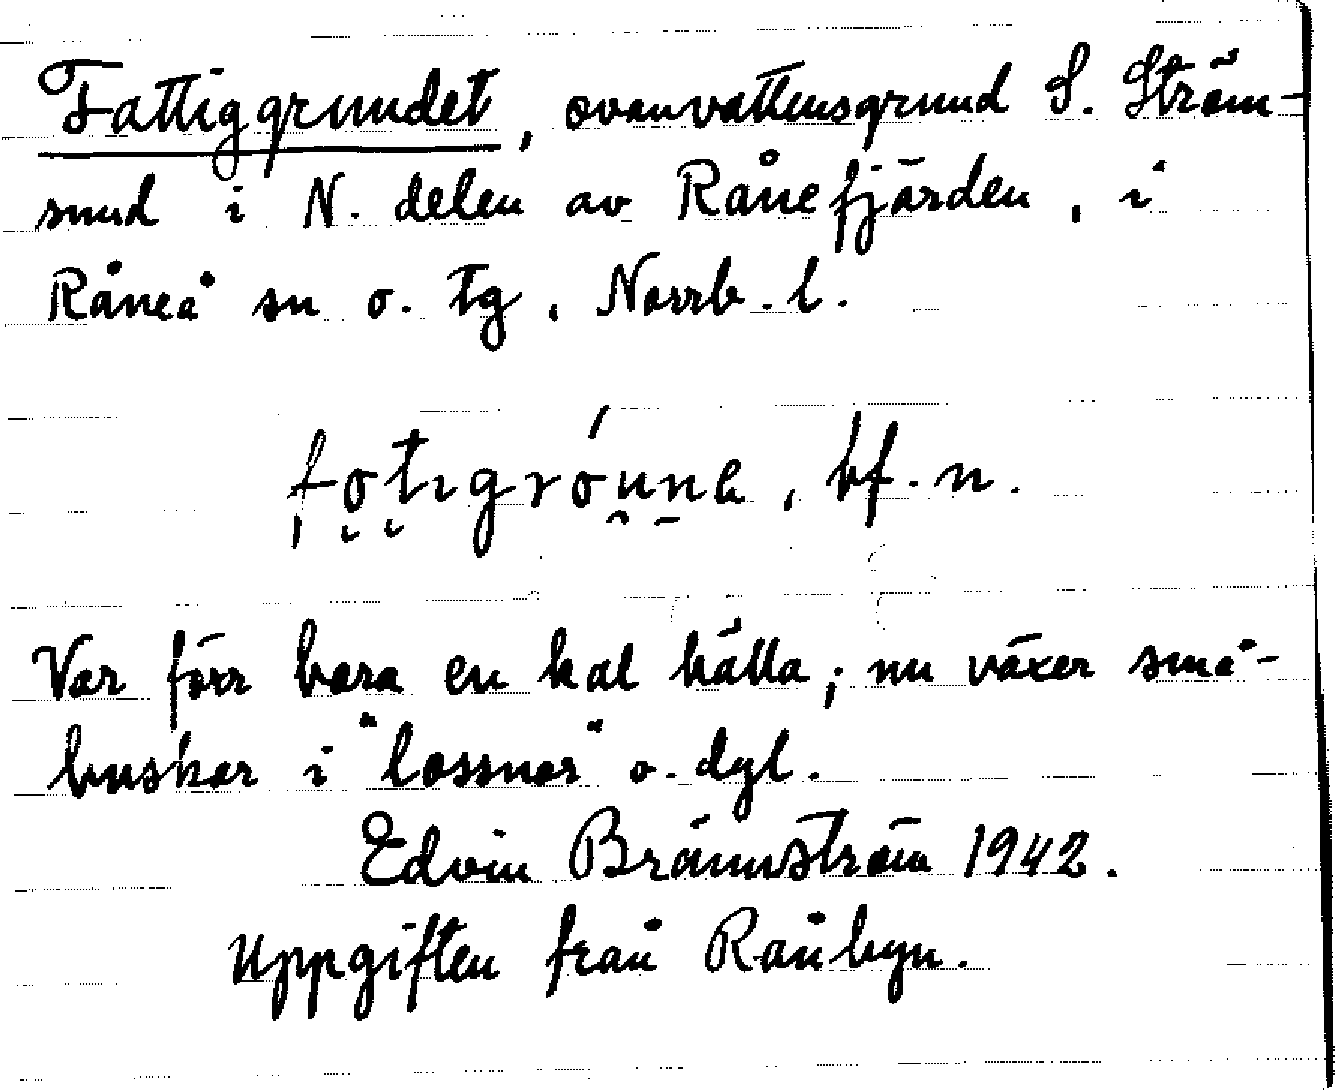 Fattiggrundet, ovanvattensgrund S. Ström-
sund i N. delen av Rånefjärden, i
Råneå sn o. tg, Norrb. l.
fo̬t̬ıgrónna, bf. n.
Var förr bara en kal hälla; nu växer små-
buskar i "lassnar" o. dgl.
Edvin Brännström 1942.
Uppgiften från Rånbyn.